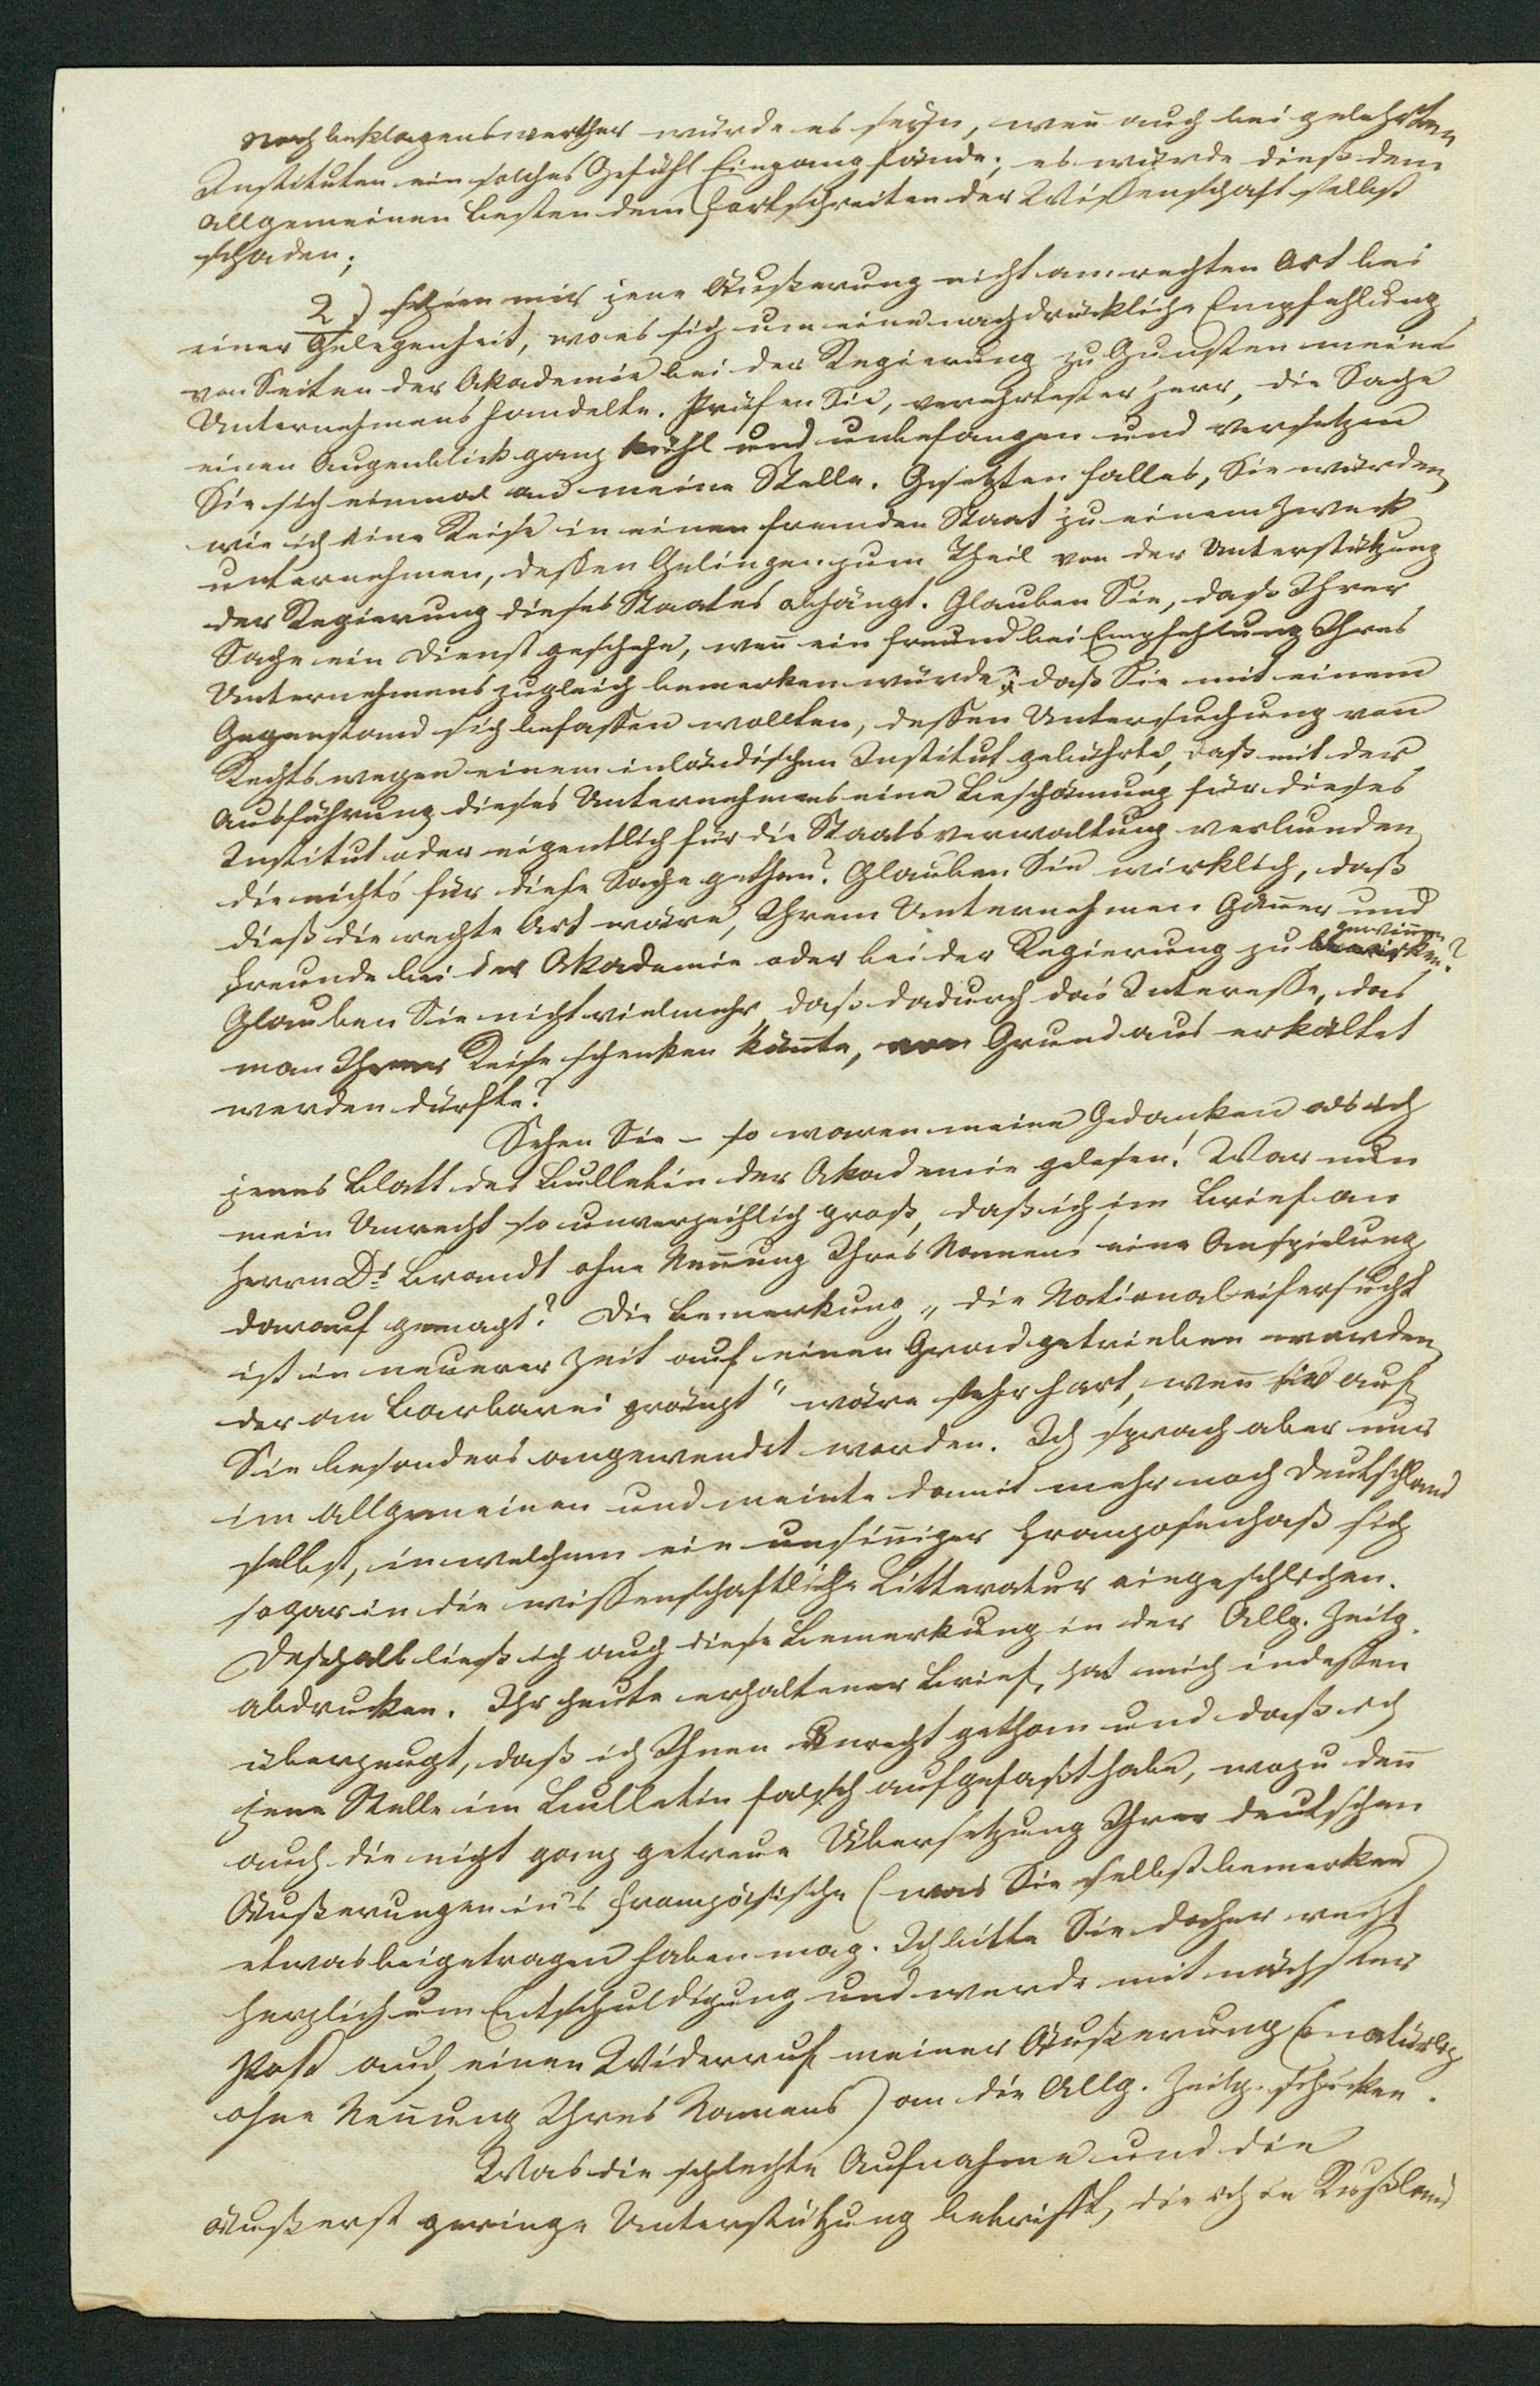 Noch beklagenswerther würde es seyn, wen̄ auch bei gelehrten
Instituten ein solches Gefühl Eingang fände; es würde dieß dem
allgemeinen Besten dem Fortschreiten der Wissenschaft selbst
schaden;
2) schien mir jene Äußerung nicht am rechten Ort bei
einer Gelegenheit, wo es sich um eine nachdrückliche Empfehlung
von Seiten der Akademie bei der Regierung zu Gunsten meines
Unternehmens handelte. Prüfen Sie, verehrtester Herr, die Sache
einen Augenblick ganz kühl und unbefangen und versetzen
Sie sich einmal an meine Stelle. Gesetzten Falles, Sie würden
wie ich eine Reise in einen fremden Staat zu einem Zweck
unternehmen, dessen Gelingen zum Theil von der Unterstützung
der Regierung dieses Staates abhängt. Glauben Sie, daß Ihrer
Sache ein Dienst geschehe, wen̄ ein Freund bei Empfehlung Ihres
Unternehmens zugleich bemerken würde; daß Sie mit einem
Gegenstand sich befassen wollten, dessen Untersuchung von
Rechts wegen einem inländischen Institut gebührte, daß mit der
Ausführung dieses Unternehmens eine Beschämung für dieses
Institut oder eigentlich für die Staatsverwaltung verbunden
die nichts für diese Sache gethan? Glauben Sie wirklich, daß
dieß die rechte Art wäre, Ihrem Unternehmen Gön̄er und
Freunde bei der Akademie oder bei der Regierung zu gewin̄en?
Glauben Sie nicht vielmehr daß dadurch das Interesse, das
man Ihrer Reise schenken kön̄te, von Grund aus erkältet
werden dürfte?
Sehen Sie – so waren meine Gedanken als ich
jenes Blatt des Bulletin der Akademie gelesen! War nun
mein Unrecht so unverzeihlich groß, daß ich im Brief an
Herrn Dr Brandt ohne Nen̄ung Ihres Namens eine Anspielung
darauf gemacht? Die Bemerkung „die Nationaleifersucht
ist in neuerer Zeit auf einen Grad getrieben worden
der an Barbarei gränzt“ wäre sehr hart, wen̄ sie auf
Sie besonders angewendet worden. Ich sprach aber nur
im Allgemeinen und meinte damit mehr noch Deutschland
selbst, in welchem ein unsin̄iger Franzosenhaß sich
sogar in die wissenschaftliche Litteratur eingeschlichen.
Deßhalb ließ ich auch diese Bemerkung in der Allg. Zeitg.
abdrucken. Ihr heute erhaltener Brief, hat mich indessen
überzeugt, daß ich Ihnen Unrecht gethan und daß ich
jene Stelle im Bulletin falsch aufgefaßt habe, wozu den̄
auch die nicht ganz getreue Übersetzung Ihrer deutschen
Äußerungen in's französische (was Sie selbst bemerken)
etwas beigetragen haben mag. Ich bitte Sie daher recht
herzlich um Entschuldigung und werde mit nächster
Post auch einen Widerruf meiner Äußerung (natürlich
ohne Nen̄ung Ihres Namens) an die Allg. Zeitg. schicken.
Was die schlechte Aufnahme und die
äußerst geringe Unterstützung betrifft, die ich in Rußland